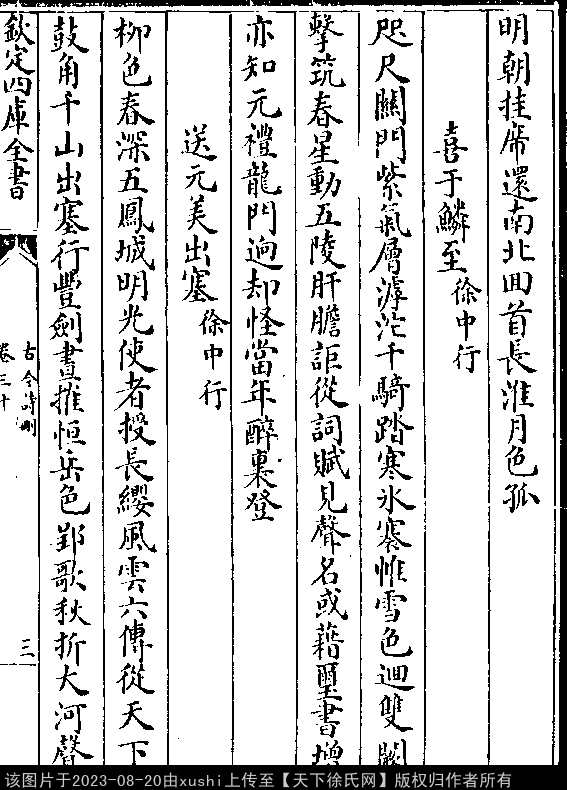 明朝挂席還南北回首長淮月色孤
喜于鱗至
徐中行
咫尺闗門紫氣層滹沱千騎踏寒氷褰帷雪色迴雙闕
擊筑春星動五陵肝膽詎從詞賦見聲名或藉璽書增
亦知元禮龍門迥却怪當年醉裏登
送元美出塞
徐中行
柳色春深五鳳城明光使者授長纓風雲六傳從天下
鼓角千山出塞行豐劍晝摧恒岳色郢歌秋折大河聲
欽定四庫全書
古今詩刪
卷三十
三
该图片于2023-08-20由xushi上传至【天下徐氏网】版权归作者所有